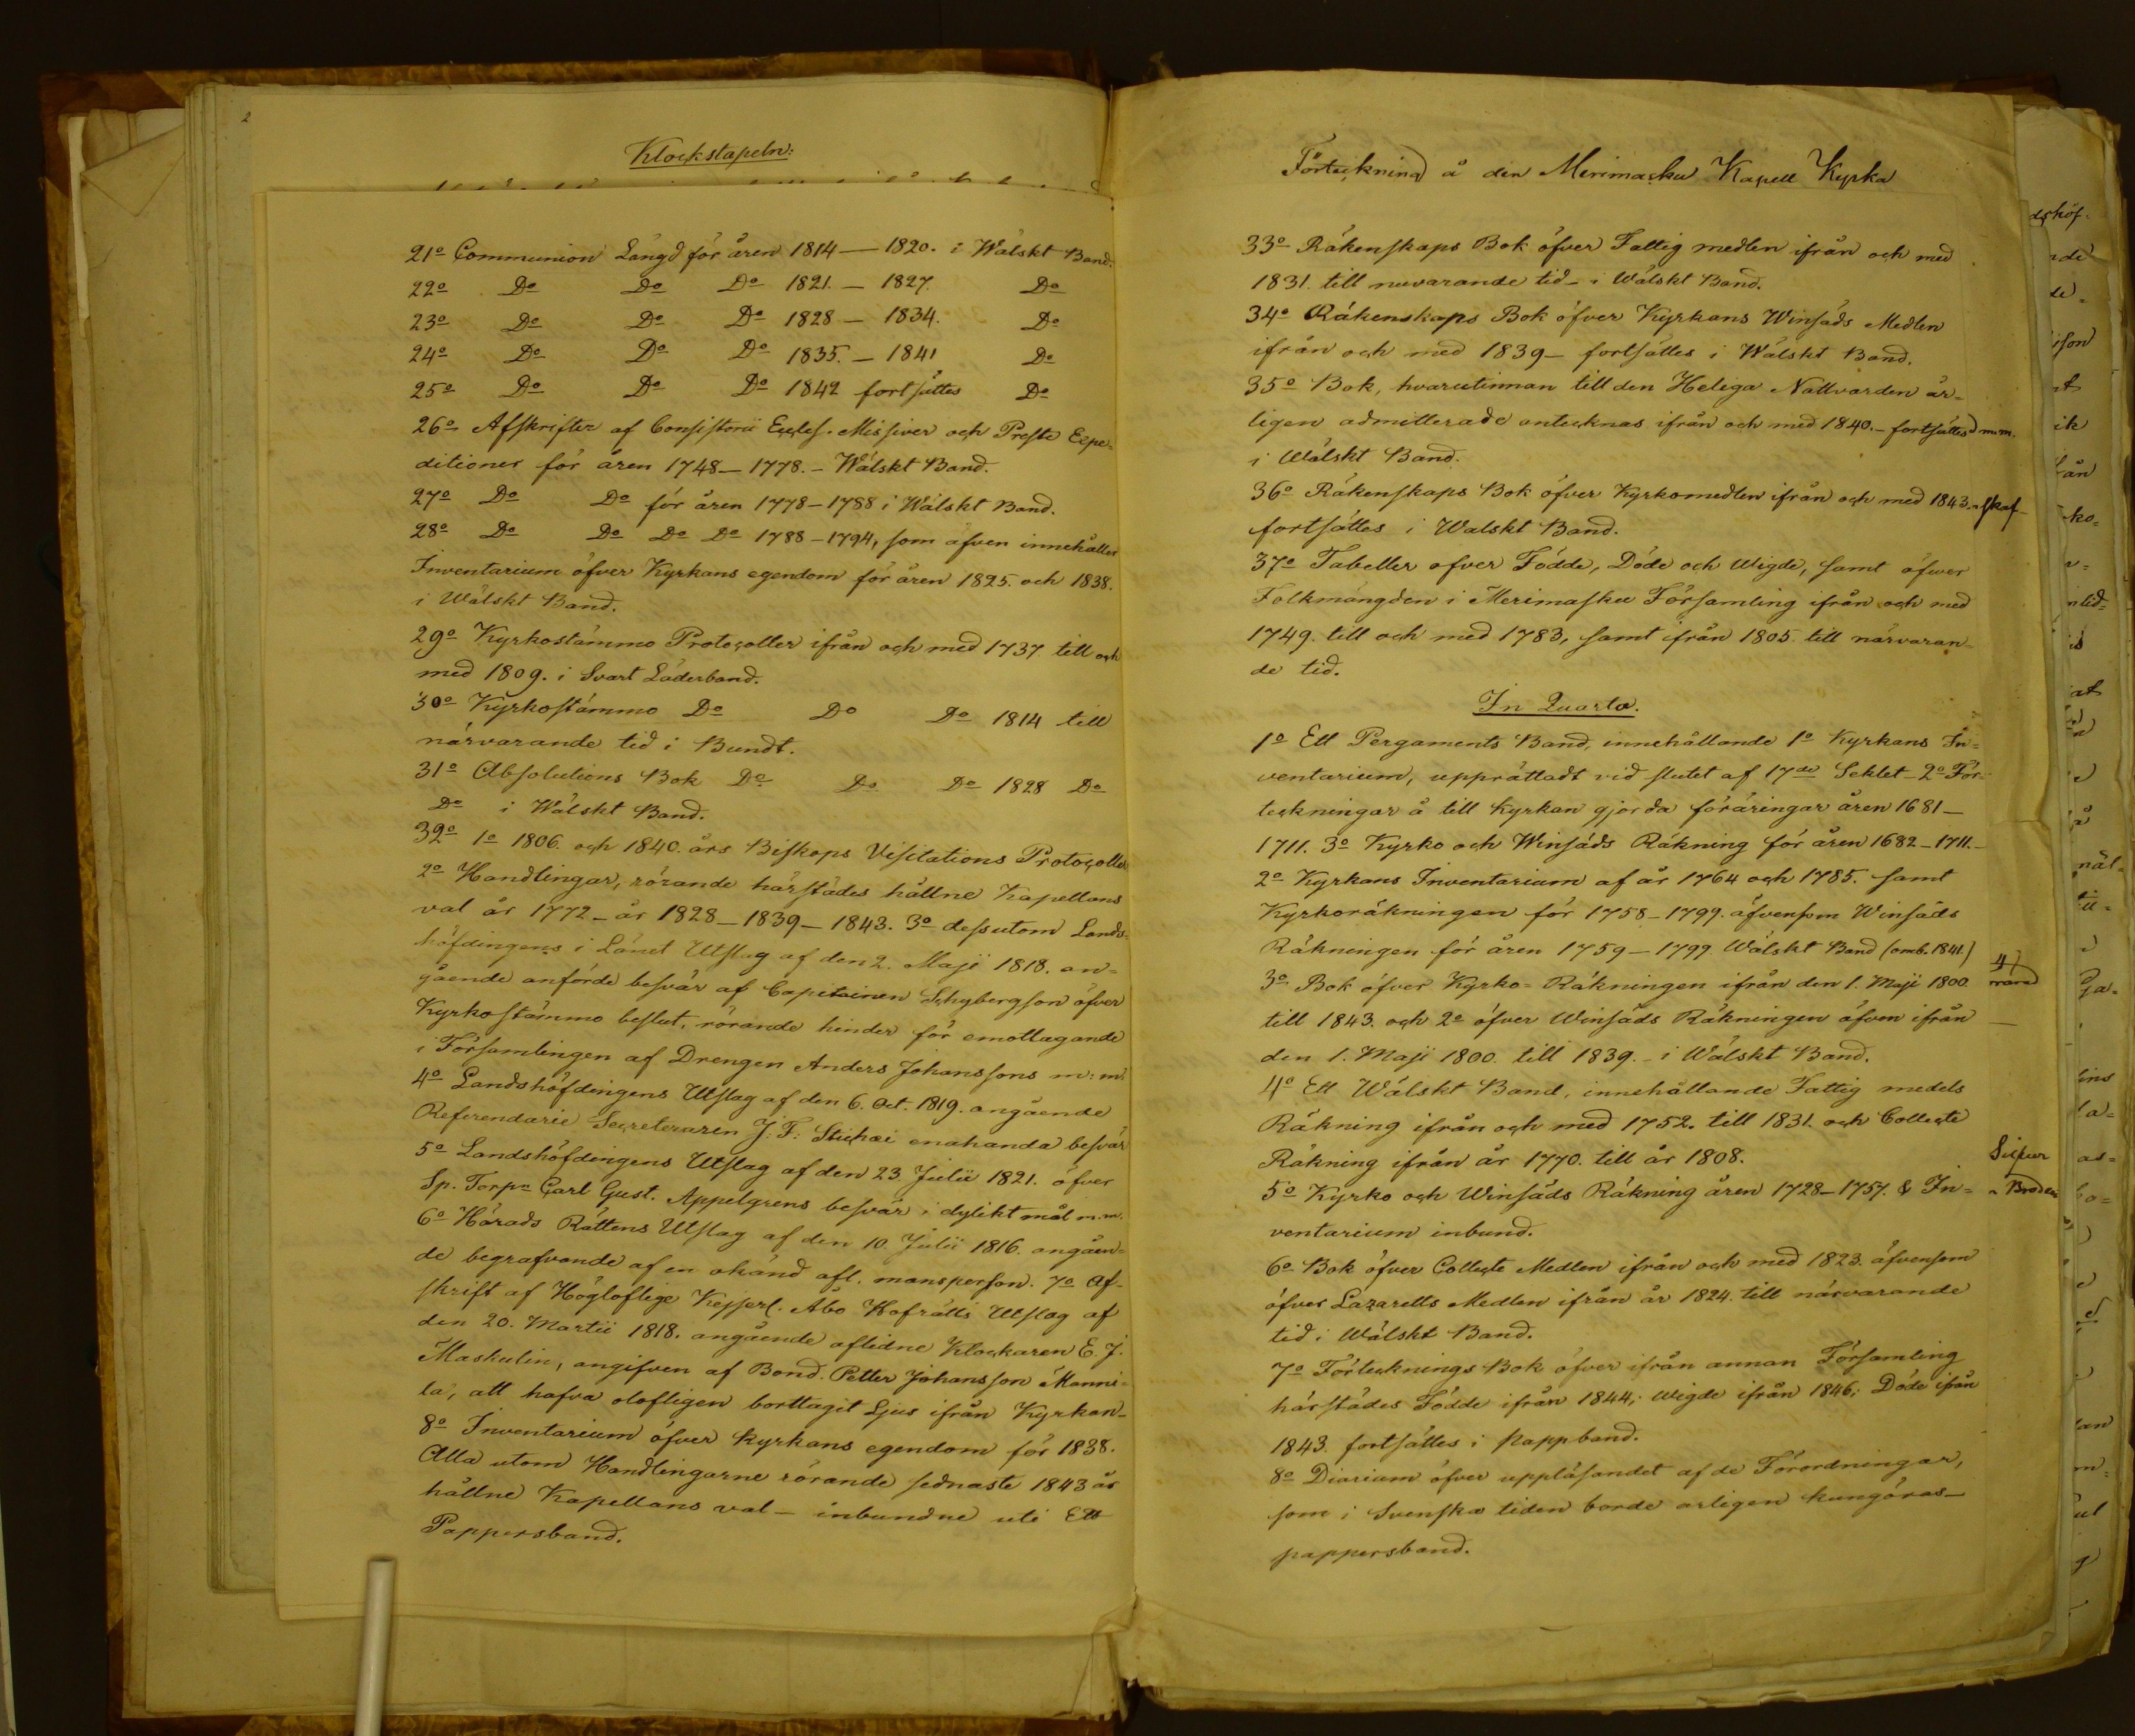 2
Klockstapeln:
21º Communion Längd för åren 1814 — 1820. i Wälskt Band.
22º Dº Dº Dº 1821. — 1827. Dº
23º Dº Dº Dº 1828 — 1834. Dº
24º Dº Dº Dº 1835. — 1841 Dº
25º Dº Dº Dº 1842 fortsättes Dº
26º Afskrifter af Consistorii Eccles. Missiver och Preste Expe=
ditioner för åren 1748 — 1778. — Wälskt Band.
27º Dº Dº för åren 1778 — 1788 i Wälskt Band.
28º Dº Dº Dº Dº 1788 — 1794, som äfven innehåller
Inventarium öfver Kyrkans egendom för åren 1825. och 1838.
i Wälskt Band.
29º Kyrkostämmo Protocoller ifrån och med 1737 till och
med 1809. i Svart Läderband.
30º Kyrkostämmo Dº Dº Dº 1814 till
närvarande tid i Bundt.
31º Absolutions Bok Dº Dº Dº 1828 Dº
Dº i Wälskt Band.
32º 1º 1806. och 1840. års Biskops Visitations Protocoller
2º Handlingar, rörande härstädes hållne Kapellans
val år 1772 — år 1828 — 1839 — 1843. 3º dessutom Lands=
höfdingens i Länet Utslag af den 2. Maji 1818. an=
gående anförde besvär af Capitainen Schybergson öfver
Kyrkostämmo beslut, rörande hinder för emottagande
i Församlingen af Drengen Anders Johanssons m: m:
4º Landshöfdingens Utslag af den 6. Oct. 1819. angående
Referendarie Secreteraren J. F: Stichæi enahanda besvär
5º Landshöfdingens Utslag af den 23 Julii 1821. öfver
Sp. Torpn Carl Gust. Appelgrens besvär i dylikt mål m. m.
6º Härads Rättens Utslag af den 10. Julii 1816. angåen=
de begrafvande af en okänd afl. mansperson. 7º Af=
skrift af Högloflige Kejserl. Åbo Hofrätts Utslag af
den 20. Martii 1818. angående aflidne Klockaren E. J.
Maskulin, angifven af Bond. Petter Johansson Manni=
la, att hafva olofligen borttagit Ljus ifrån Kyrkan —
8º Inventarium öfver kyrkans egendom för 1838.
Alla utom Handlingarne rörande sednaste 1843 år
hållne Kapellans val — inbundne uti Ett
Pappersband.
Förteckning å den Merimasku Kapell Kyrka
33º Räkenskaps Bok öfver Fattig medlen ifrån och med
1831. till nuvarande tid — i Wälskt Band.
34º Räkenskaps Bok öfver Kyrkans Winsäds Medlen
ifrån och med 1839 — fortsättes i Wälskt Band.
35º Bok, hvarutinnan till den Heliga Nattvarden år=
ligen admitterade antecknas ifrån och med 1840. — fortsättes m.m.
i Wälskt Band.
36º Räkenskaps Bok öfver Kyrkomedlen ifrån och med 1843.
fortsättes i Walskt Band.
37º Tabeller öfver Födde, Döde och Wigde, samt öfwer
Folkmängden i Merimasku Församling ifrån och med
1749. till och med 1783, samt ifrån 1805. till närvaran=
de tid.
In Quarto.
1º Ett Pergaments Band, innehållande 1º Kyrkans In=
ventarium, upprättadt vid slutet af 17de Seklet — 2º För=
teckningar å till kyrkan gjorda föräringar åren 1681 —
1711. 3º Kyrko och Winsäds Räkning för åren 1682 — 1711. —
2º Kyrkans Inventarium af år 1764 och 1785. samt
Kyrkoräkningen för 1758 — 1799. äfvensom Winsäds
Räkningen för åren 1759 — 1799 Wälskt Band (omb. 1841.)
3º Bok öfver Kyrko = Räkningen ifrån den 1. Maji 1800.
till 1843. och 2º öfver Winsäds Räkningen äfven ifrån
den 1. Maji 1800. till 1839. — i Wälskt Band.
4º Ett Wälskt Band, innehållande Fattig medels
Räkning ifrån och med 1752. till 1831. och Collecte
Räkning ifrån år 1770. till år 1808.
5º Kyrko och Winsäds Räkning åren 1728 — 1757. & In=
ventarium inbund.
6º Bok öfver Collecte Medlen ifrån och med 1823. äfvensom
öfver Lazaretts Medlen ifrån år 1824. till närvarande
tid i Wälskt Band.
7º Förtecknings Bok öfver ifrån annan Församling
härstädes Födde ifrån 1844; Wigde ifrån 1846; Döde ifrån
1843. fortsättes i Pappband.
8º Diarium öfver uppläsandet af de Förordningar,
som i Svenska tiden borde årligen kungöras —
pappersband.